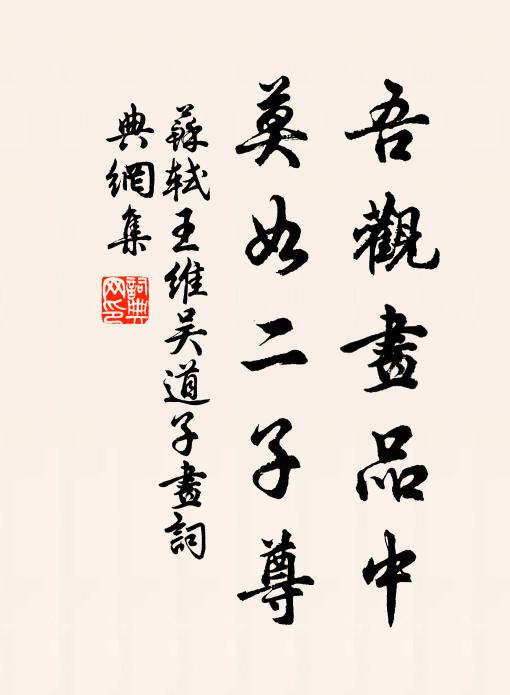 吾觀畫品中
莫如二子尊
蘇軾王維吳道子畫詞
典網集
詞典
网印